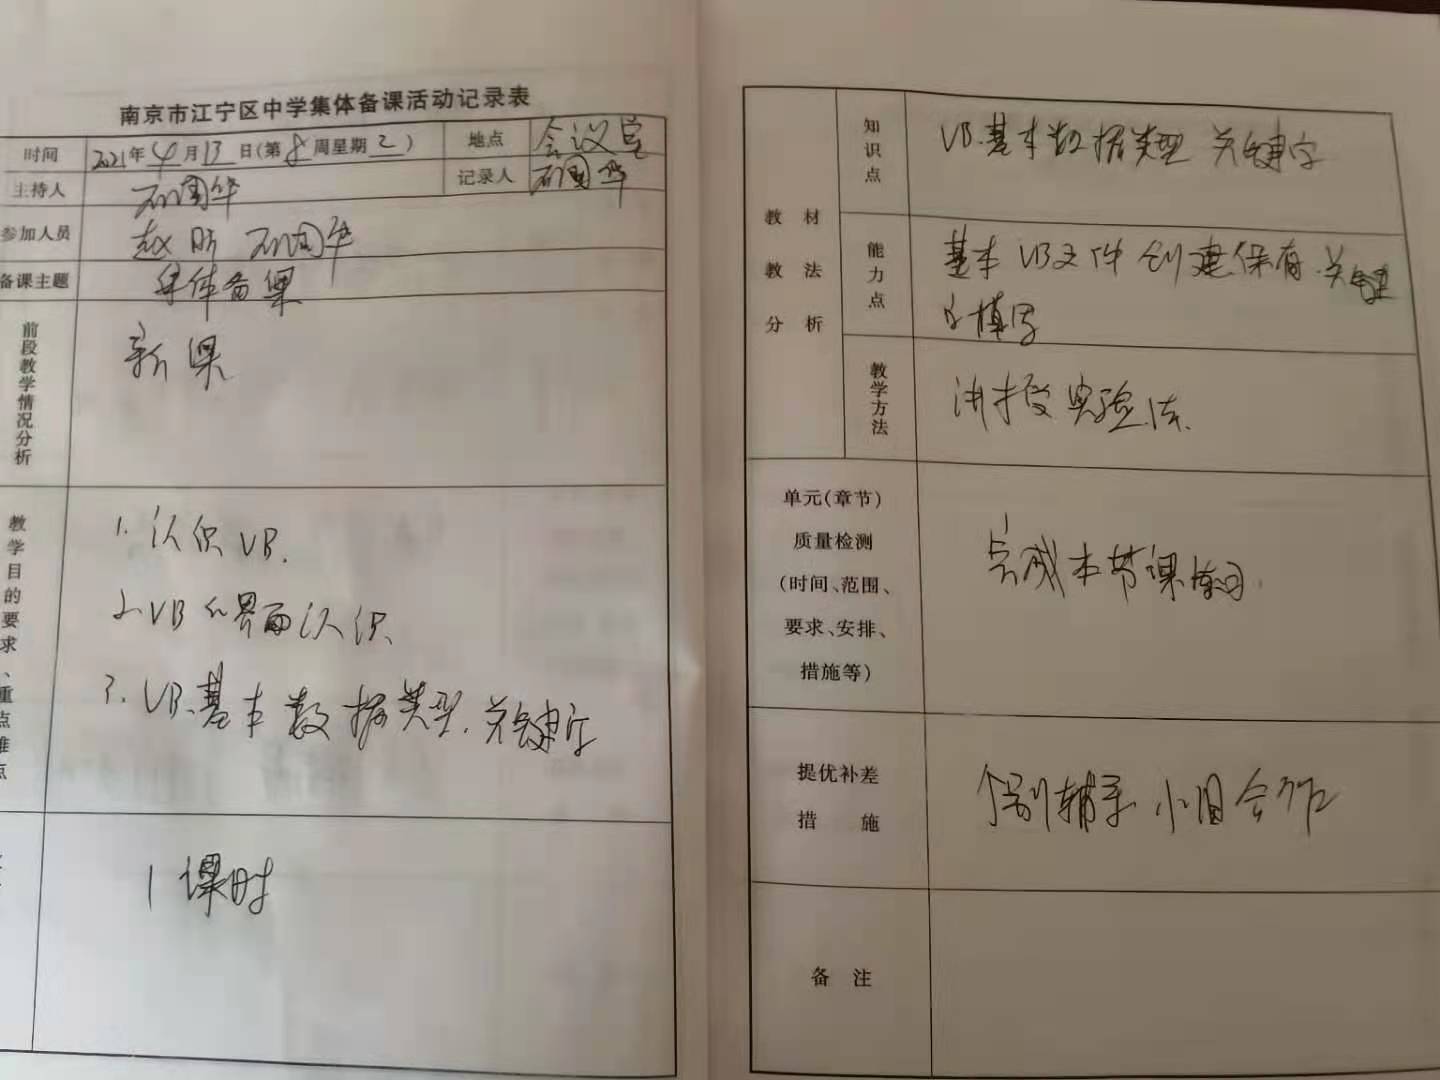 南京市江宁区中学集体备课活动记录表
时间 2021年4月13日(第8周星期二) 地点 会议室
主持人 石国华 记录人 石国华
参加人员 赵昕 石国华
备课主题 集体备课
前段教学情况分析 新课
教学目的要求、重点难点
1. 认识VB.
2. VB的界面认识.
3. VB.基本数据类型.关键字
1课时
教材教法分析
知识点 VB.基本数据类型 关键字
能力点 基本VB文件创建保存.关键
的填写
教学方法 讲授实验法.
单元(章节)
质量检测
(时间、范围、
要求、安排、
措施等)
完成本节课练习.
提优补差
措施
个别辅导 小组合作
备注